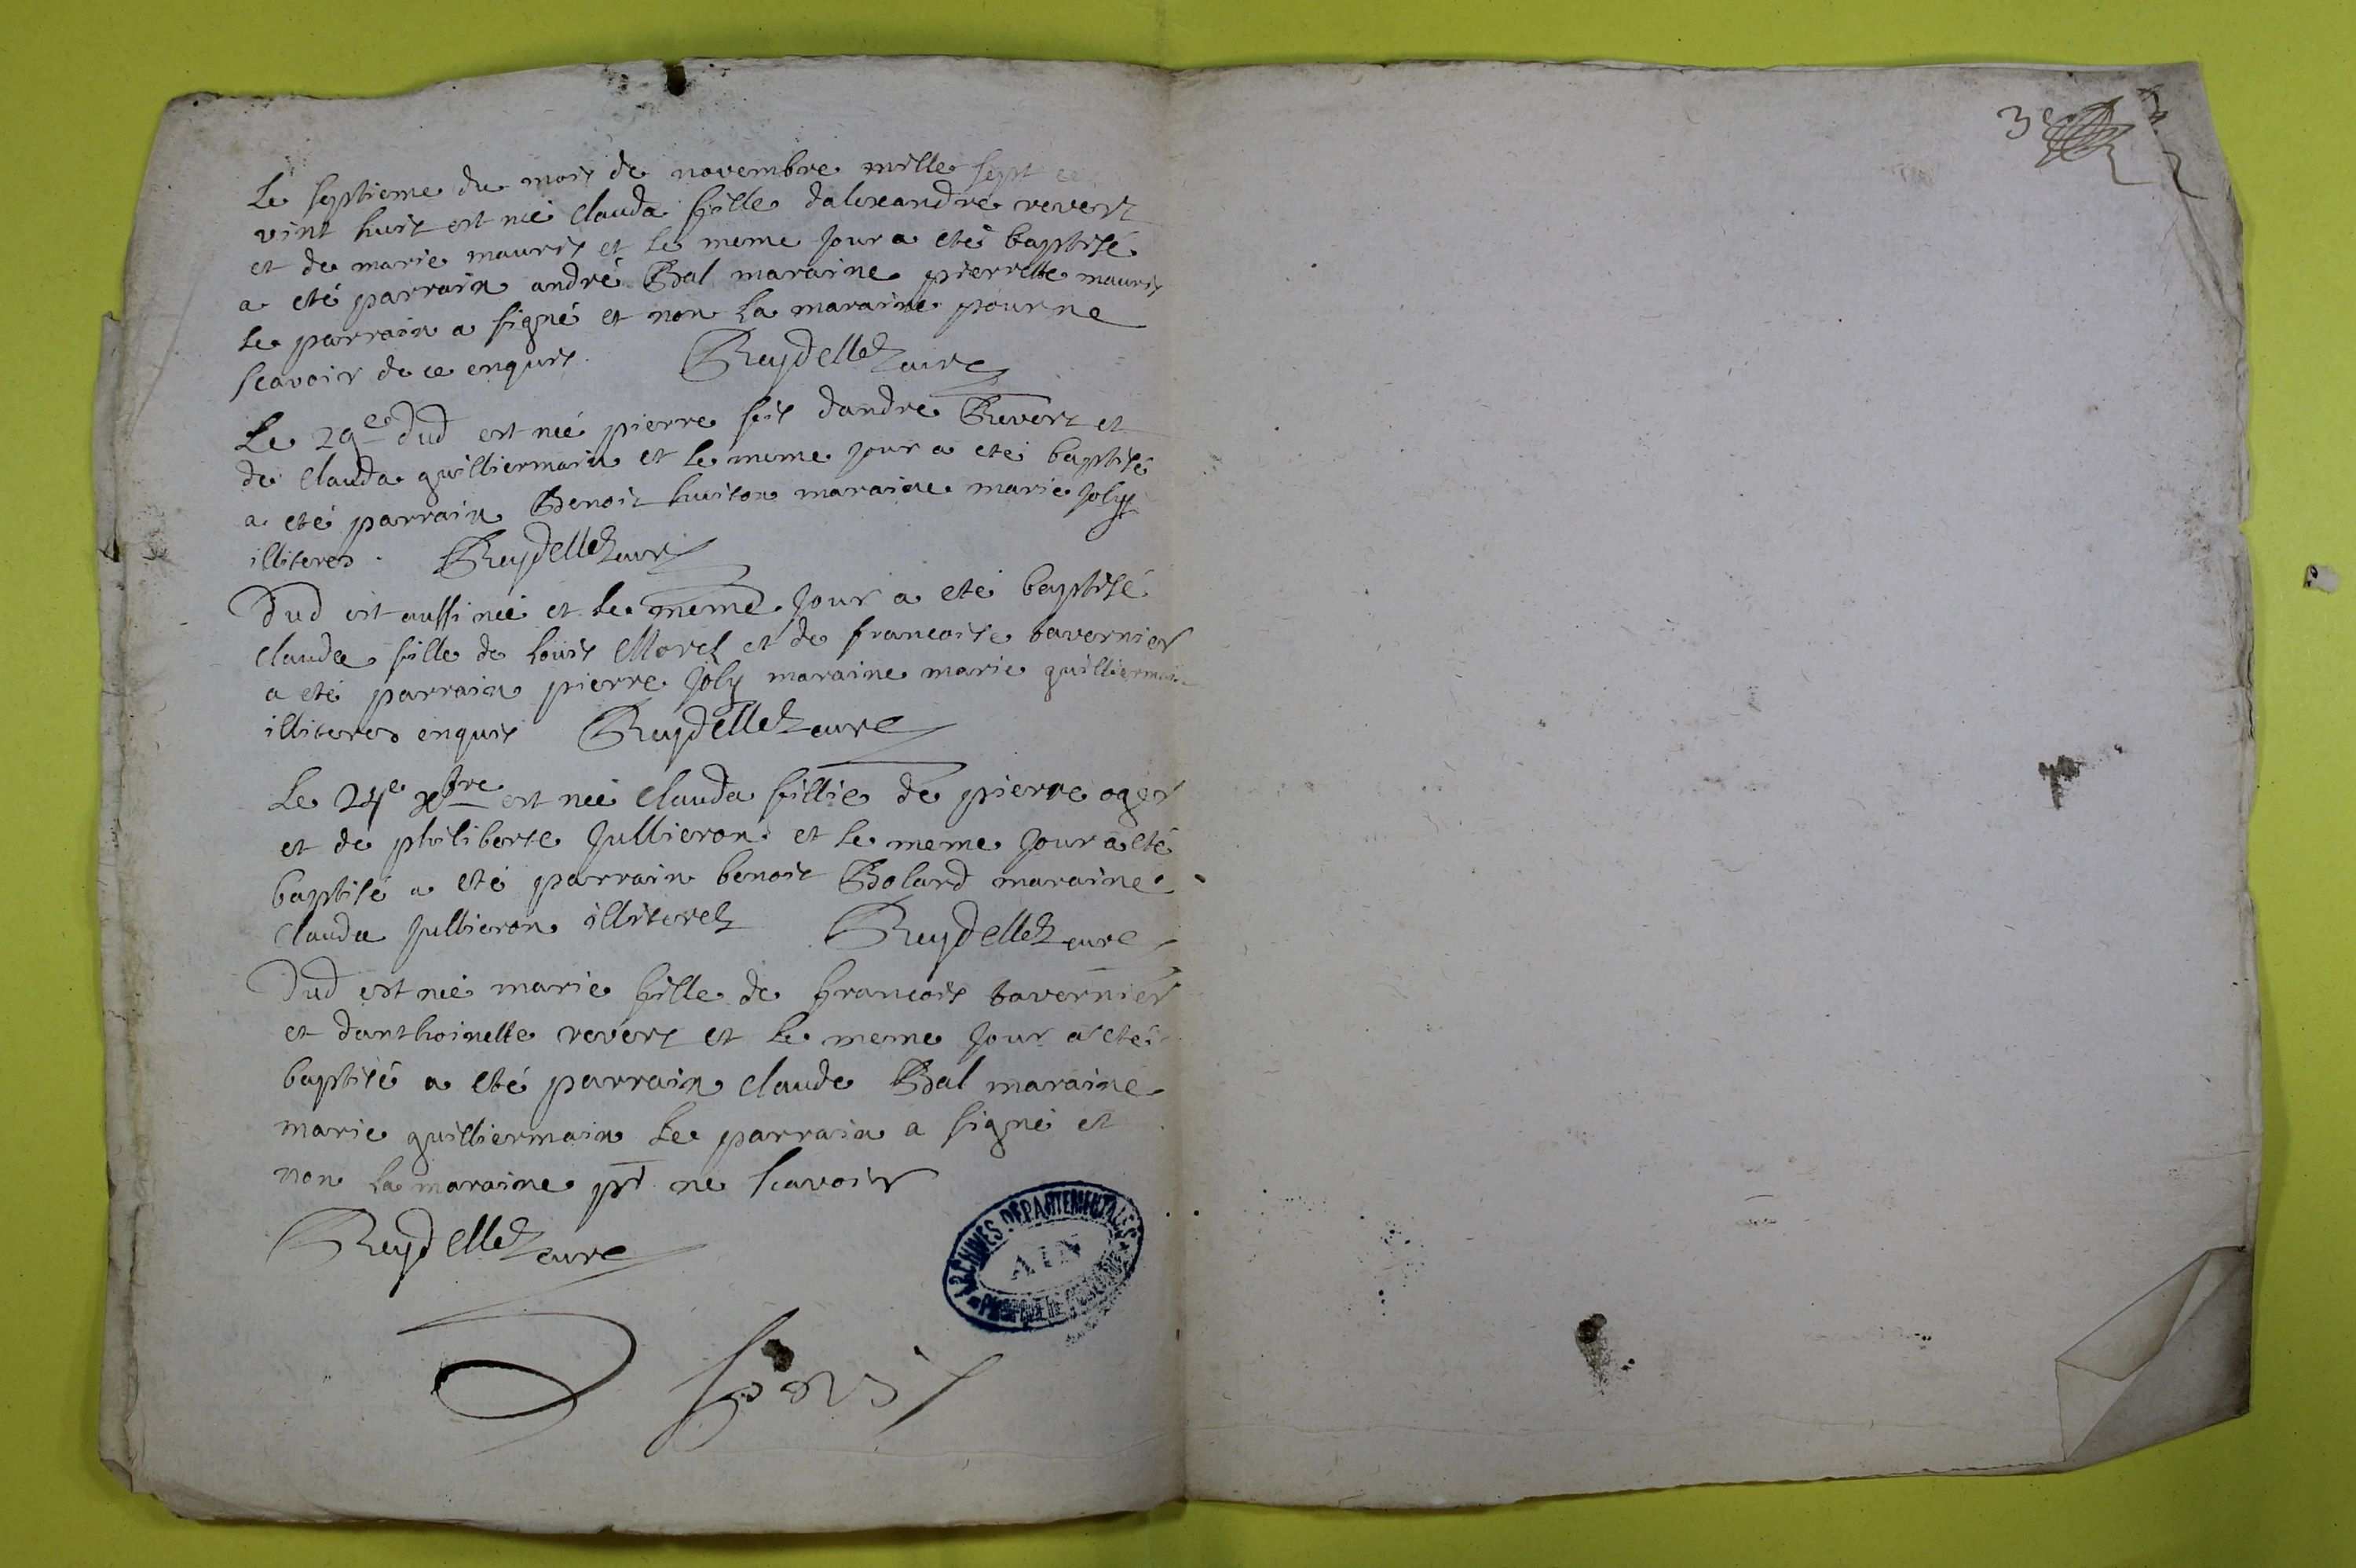 Le septieme du mois de novembre mille sept ce
vint huit est née clauda fille dalexandre revert
et de marie mauris et le meme jour a eté baptisé
a eté parrain andré Bal maraine pierrette mauris
le parrain a signé et non la maraine pour ne
scavoir de ce enquis. Reydellet curé
Le 29e dud est né pierre fils dandre Revert et
de clauda guilliermain et le meme jour a eté baptisé
a eté parrain Benoit huiton maraine marie joly
illiteres. Reydellet curé
Dud est aussi née et le meme jour a eté baptisé
claude fille de louis Morel et de francoise tavernier
a eté parrain pierre joly maraine marie guilliermain
illiteres enquis Reydellet curé
Le 24e xbre est née clauda fillie de pierre oger
et de philiberte jullieron et le meme jour a eté
baptisé a eté parrain benoit Bolard maraine
clauda jullieron illiterez Reydellet curé
Dud est née marie fille de francois tavernier
et danthoinette revert et le meme jour a eté
baptisé a eté parrain claude Bal maraine
marie guilliermain Le parrain a signé et
non la maraine pr ne scavoir
Reydellet curé
ARCHIVES DEPARTEMENTALES
AIN
3e